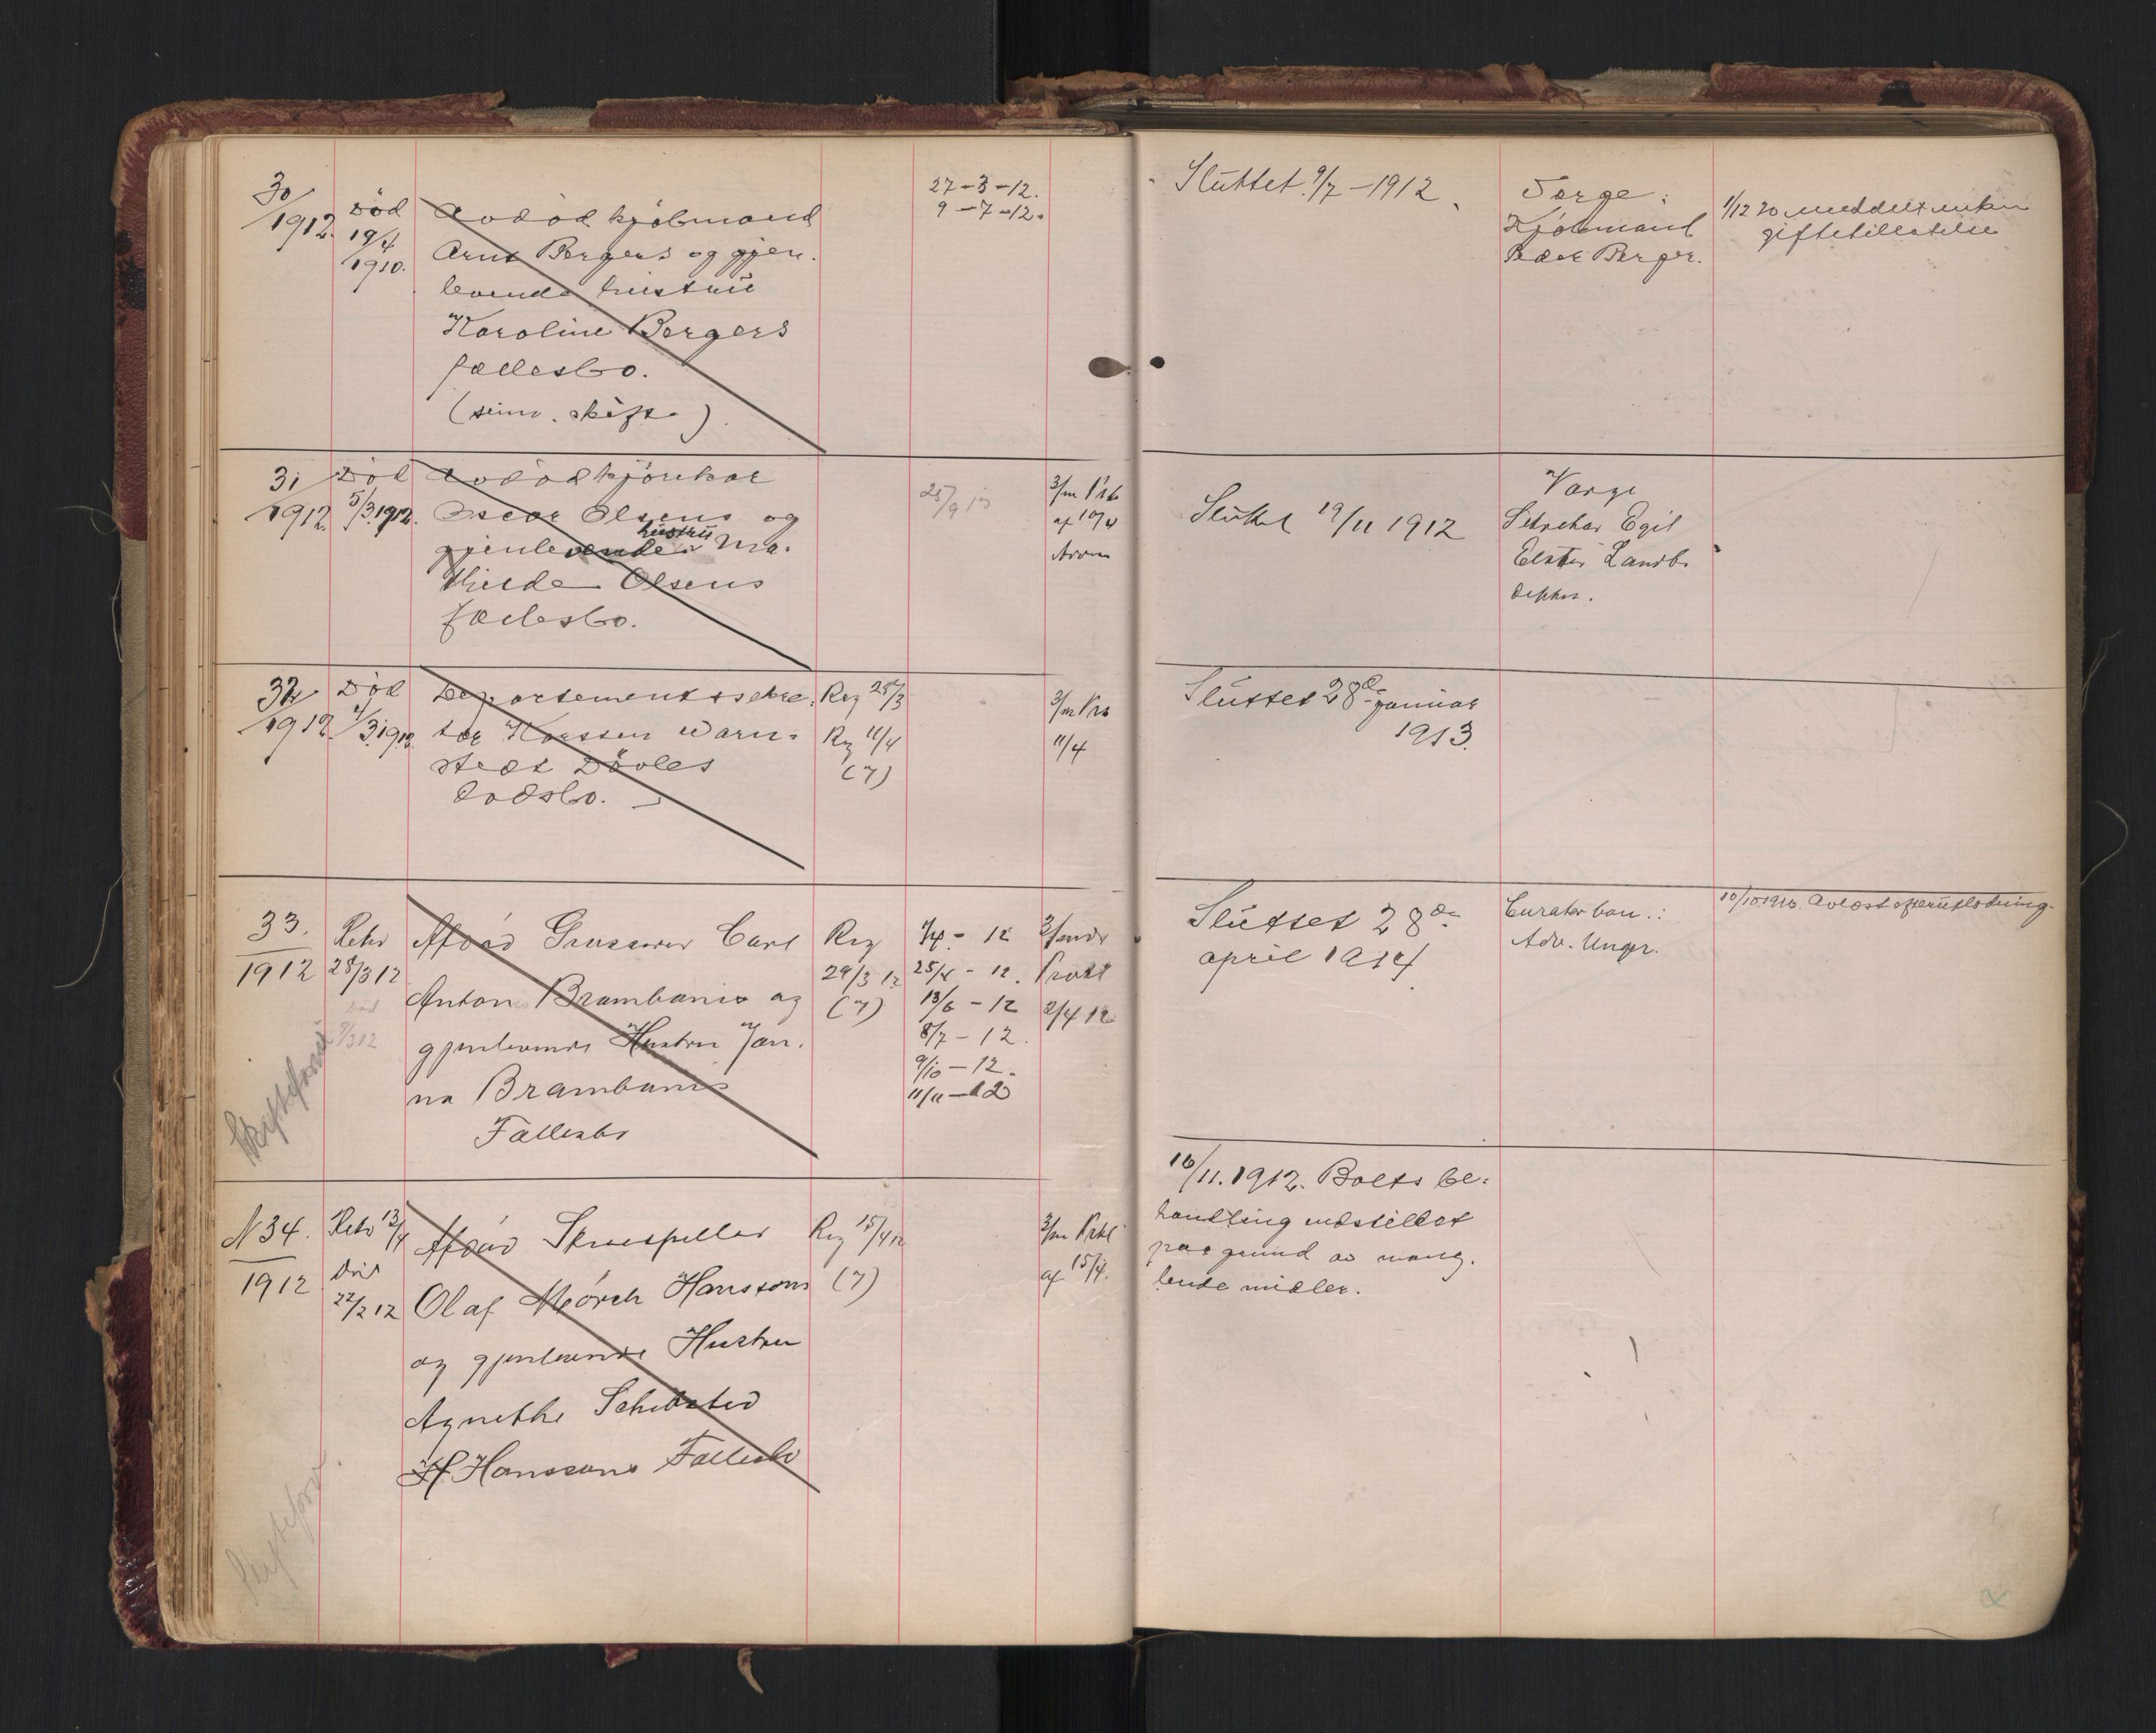 30/1912.
Död
19/4
1910.
Avdöd kjöbmand
Arnt Bergers og gjen-
levende hustru
Karoline Bergers
fællesbo.
(seinv. skifte)
27-3-12.
9-7-12.
Sluttet 9/7-1912.
Verge:
Kjöbmand
Peder Berger.
1/12 20 meddelt enken
giftetillatelse
31/1912.
Död
5/3.1912.
Avdöd kjörekar
Oscar Olsens og
hustru
gjenlevende Ma-
thilde Olsens
fællesbo.
25/9 13
3/m Prk
af 10/4
Sluttet 19/11 1912
Verge
Sekretær Egil
Landb.
32/1912
Död
1/3.1912
Departementssekre-
tær Warn-
stedt Dövles
dödsbo.
Reg 25/3
Reg 11/4
(7)
3/m Prk
11/4
Sluttet 28de januar
1913.
33.
1912
Rekv
28/3 12
Död
9/3 12
Afdöd Grosserer Carl
Anton Brambanis og
gjenlevende Hustru Jan-
na Brambanis
Fællesbo
Reg
29/3 12
(7)
1/4-12
25/4-12.
13/6-12
8/7-12.
9/10-12.
11/11-12
3/mdr
Prokl
2/4 12
Sluttet 28de
april 1914.
Curator bon.:
Adv. Unger.
10/10 1916. Avlöst efterutlodning.
Skifteforv
N 34.
1912
Rekv 13/4
Död
22/2 12
Afdöd Skuespiller
Olaf Mörch Hanssons
og gjenlevende Hustru
Agnethe Schibsted
H. Hanssons Fællesbo
Reg 15/4 12
(7)
3/m Prkl
af 15/4.
16/11.1912. Boets be-
handling indstillet
paa grund av mang-
lende midler.
Skifteforv.